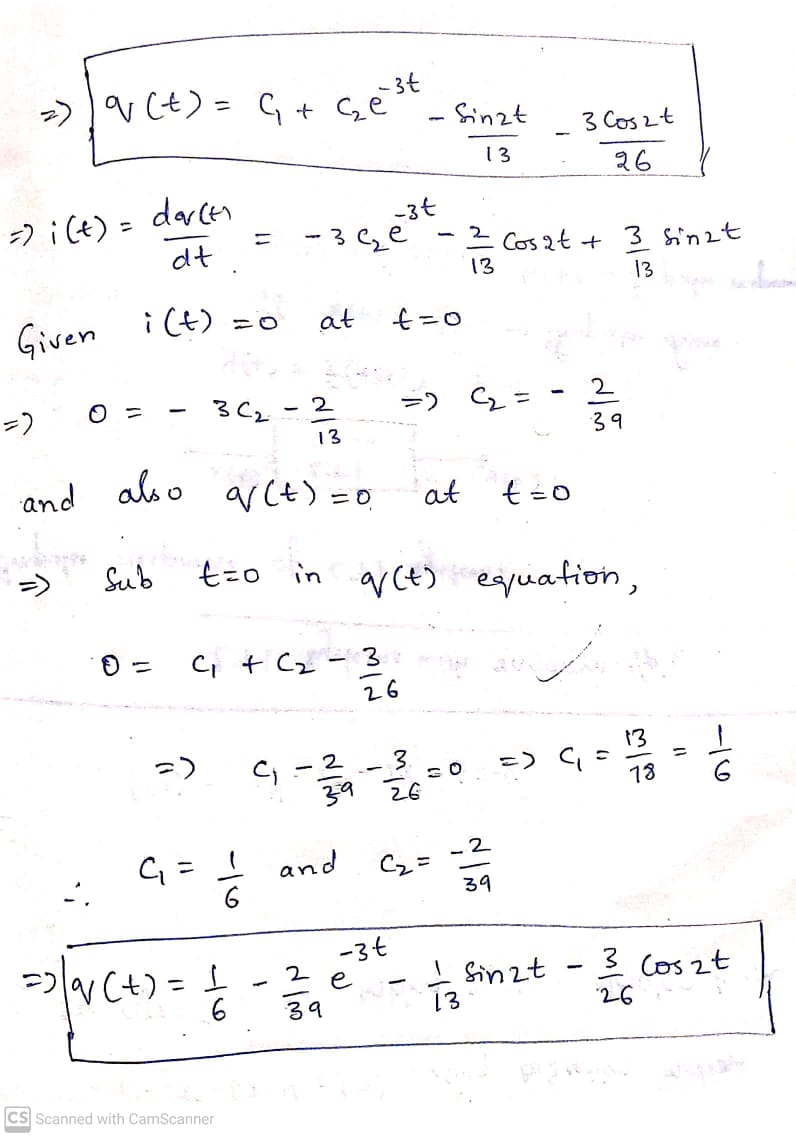 => q(t) = C₁ + C₂e^-3t - Sin2t/13 - 3Cos2t/26
=> i(t) = dq(t)/dt = -3C₂e^-3t - 2/13 Cos2t + 3/13 Sin2t
Given i(t) = 0 at t=0
=> 0 = - 3C₂ - 2/13 => C₂ = - 2/39
and also q(t) = 0 at t=0
=> Sub t=0 in q(t) equation,
0 = C₁ + C₂ - 3/26
=> C₁ - 2/39 - 3/26 = 0 => C₁ = 13/78 = 1/6
∴ C₁ = 1/6 and C₂ = -2/39
=> q(t) = 1/6 - 2/39 e^-3t - 1/13 Sin2t - 3/26 Cos2t
CS Scanned with CamScanner